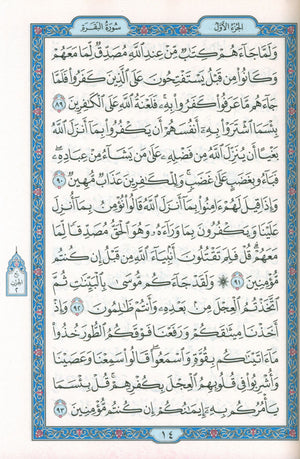 الجزء الأول
سورة البقرة
وَلَمَّا جَآءَهُمْ كِتَٰبٌ مِّنْ عِندِ ٱللَّهِ مُصَدِّقٌ لِّمَا مَعَهُمْ
وَكَانُوا۟ مِن قَبْلُ يَسْتَفْتِحُونَ عَلَى ٱلَّذِينَ كَفَرُوا۟ فَلَمَّا
جَآءَهُم مَّا عَرَفُوا۟ كَفَرُوا۟ بِهِۦ فَلَعْنَةُ ٱللَّهِ عَلَى ٱلْكَٰفِرِينَ ٨٩
بِئْسَمَا ٱشْتَرَوْا۟ بِهِۦٓ أَنفُسَهُمْ أَن يَكْفُرُوا۟ بِمَآ أَنزَلَ ٱللَّهُ
بَغْيًا أَن يُنَزِّلَ ٱللَّهُ مِن فَضْلِهِۦ عَلَىٰ مَن يَشَآءُ مِنْ عِبَادِهِۦ
فَبَآءُو بِغَضَبٍ عَلَىٰ غَضَبٍ وَلِلْكَٰفِرِينَ عَذَابٌ مُّهِينٌ ٩٠
وَإِذَا قِيلَ لَهُمْ ءَامِنُوا۟ بِمَآ أَنزَلَ ٱللَّهُ قَالُوا۟ نُؤْمِنُ بِمَآ أُنزِلَ
عَلَيْنَا وَيَكْفُرُونَ بِمَا وَرَآءَهُۥ وَهُوَ ٱلْحَقُّ مُصَدِّقًا لِّمَا
مَعَهُمْ قُلْ فَلِمَ تَقْتُلُونَ أَنۢبِيَآءَ ٱللَّهِ مِن قَبْلُ إِن كُنتُم
مُّؤْمِنِينَ ٩١ وَلَقَدْ جَآءَكُم مُّوسَىٰ بِٱلْبَيِّنَٰتِ ثُمَّ
ٱتَّخَذْتُمُ ٱلْعِجْلَ مِنۢ بَعْدِهِۦ وَأَنتُمْ ظَٰلِمُونَ ٩٢ وَإِذْ
أَخَذْنَا مِيثَٰقَكُمْ وَرَفَعْنَا فَوْقَكُمُ ٱلطُّورَ خُذُوا۟
مَآ ءَاتَيْنَٰكُم بِقُوَّةٍ وَٱسْمَعُوا۟ قَالُوا۟ سَمِعْنَا وَعَصَيْنَا
وَأُشْرِبُوا۟ فِى قُلُوبِهِمُ ٱلْعِجْلَ بِكُفْرِهِمْ قُلْ بِئْسَمَا
يَأْمُرُكُم بِهِۦٓ إِيمَٰنُكُمْ إِن كُنتُم مُّؤْمِنِينَ ٩٣
١٤